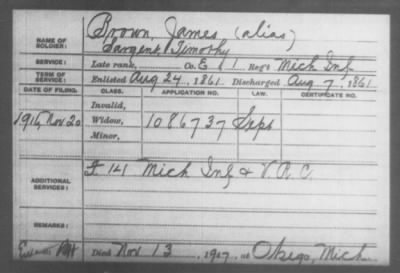 NAME OF SOLDIER: Brown, James, (alias)
Sargent, Timothy
SERVICE: Late rank, Co. E & I Reg't Mich Inf
TERM OF SERVICE: Enlisted Aug 24, 1861. Discharged Aug 7, 1861
DATE OF FILING. CLASS. APPLICATION NO. LAW. CERTIFICATE NO.
Invalid,
1916, Nov 20 Widow, 1086737
Minor,
ADDITIONAL SERVICES: 141 Mich Inf & V.R.C.
REMARKS:
Died Nov 13, 1907, at Otsego, Mich